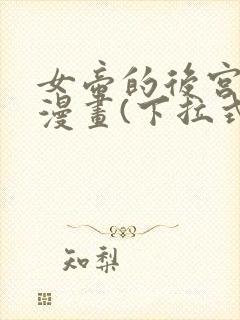 女帝的後宮
漫畫(下拉式
知梨